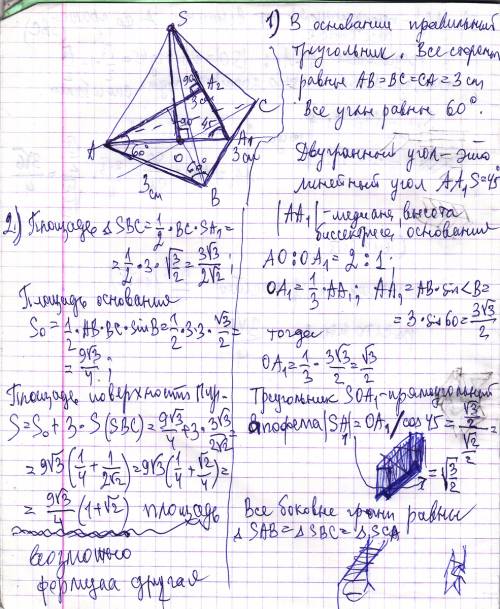 S
90°
A₂
3 см
C
A
60°
90°
O
45°
A₁
3 см
60°
B
3 см
1) В основании правильный
треугольник. Все стороны
равные AB=BC=CA=3 см
Все углы равные 60°.
Двугранный угол - это
линейный угол AA₁S=45°
|AA₁| - медиана, высота
биссектриса, основания
AO:OA₁=2:1;
OA₁=1/3·AA₁; AA₁=AB·sin<B=
=3·sin60=3√3/2
тогда
OA₁=1/3·3√3/2=√3/2
Треугольник SOA₁-прямоугольный
апофема |SA₁|=OA₁/cos45=(√3/2)/(√2/2)=
=√(3/2)
Все боковые грани равны
△SAB=△SBC=△SCA
2.) Площадь △SBC=1/2·BC·SA₁=
=1/2·3·√3/√2=3√3/2√2;
Площадь основания
S₀=1/2·AB·BC·sinB=1/2·3·3·√3/2=
=9√3/4;
Площадь поверхности Пир-
S=S₀+3·S(SBC)=9√3/4+3·3√3/2√2
=9√3(1/4+1/2√2)=9√3(1/4+√2/4)=
=9√3/4(1+√2) площадь
возможно
формула другая